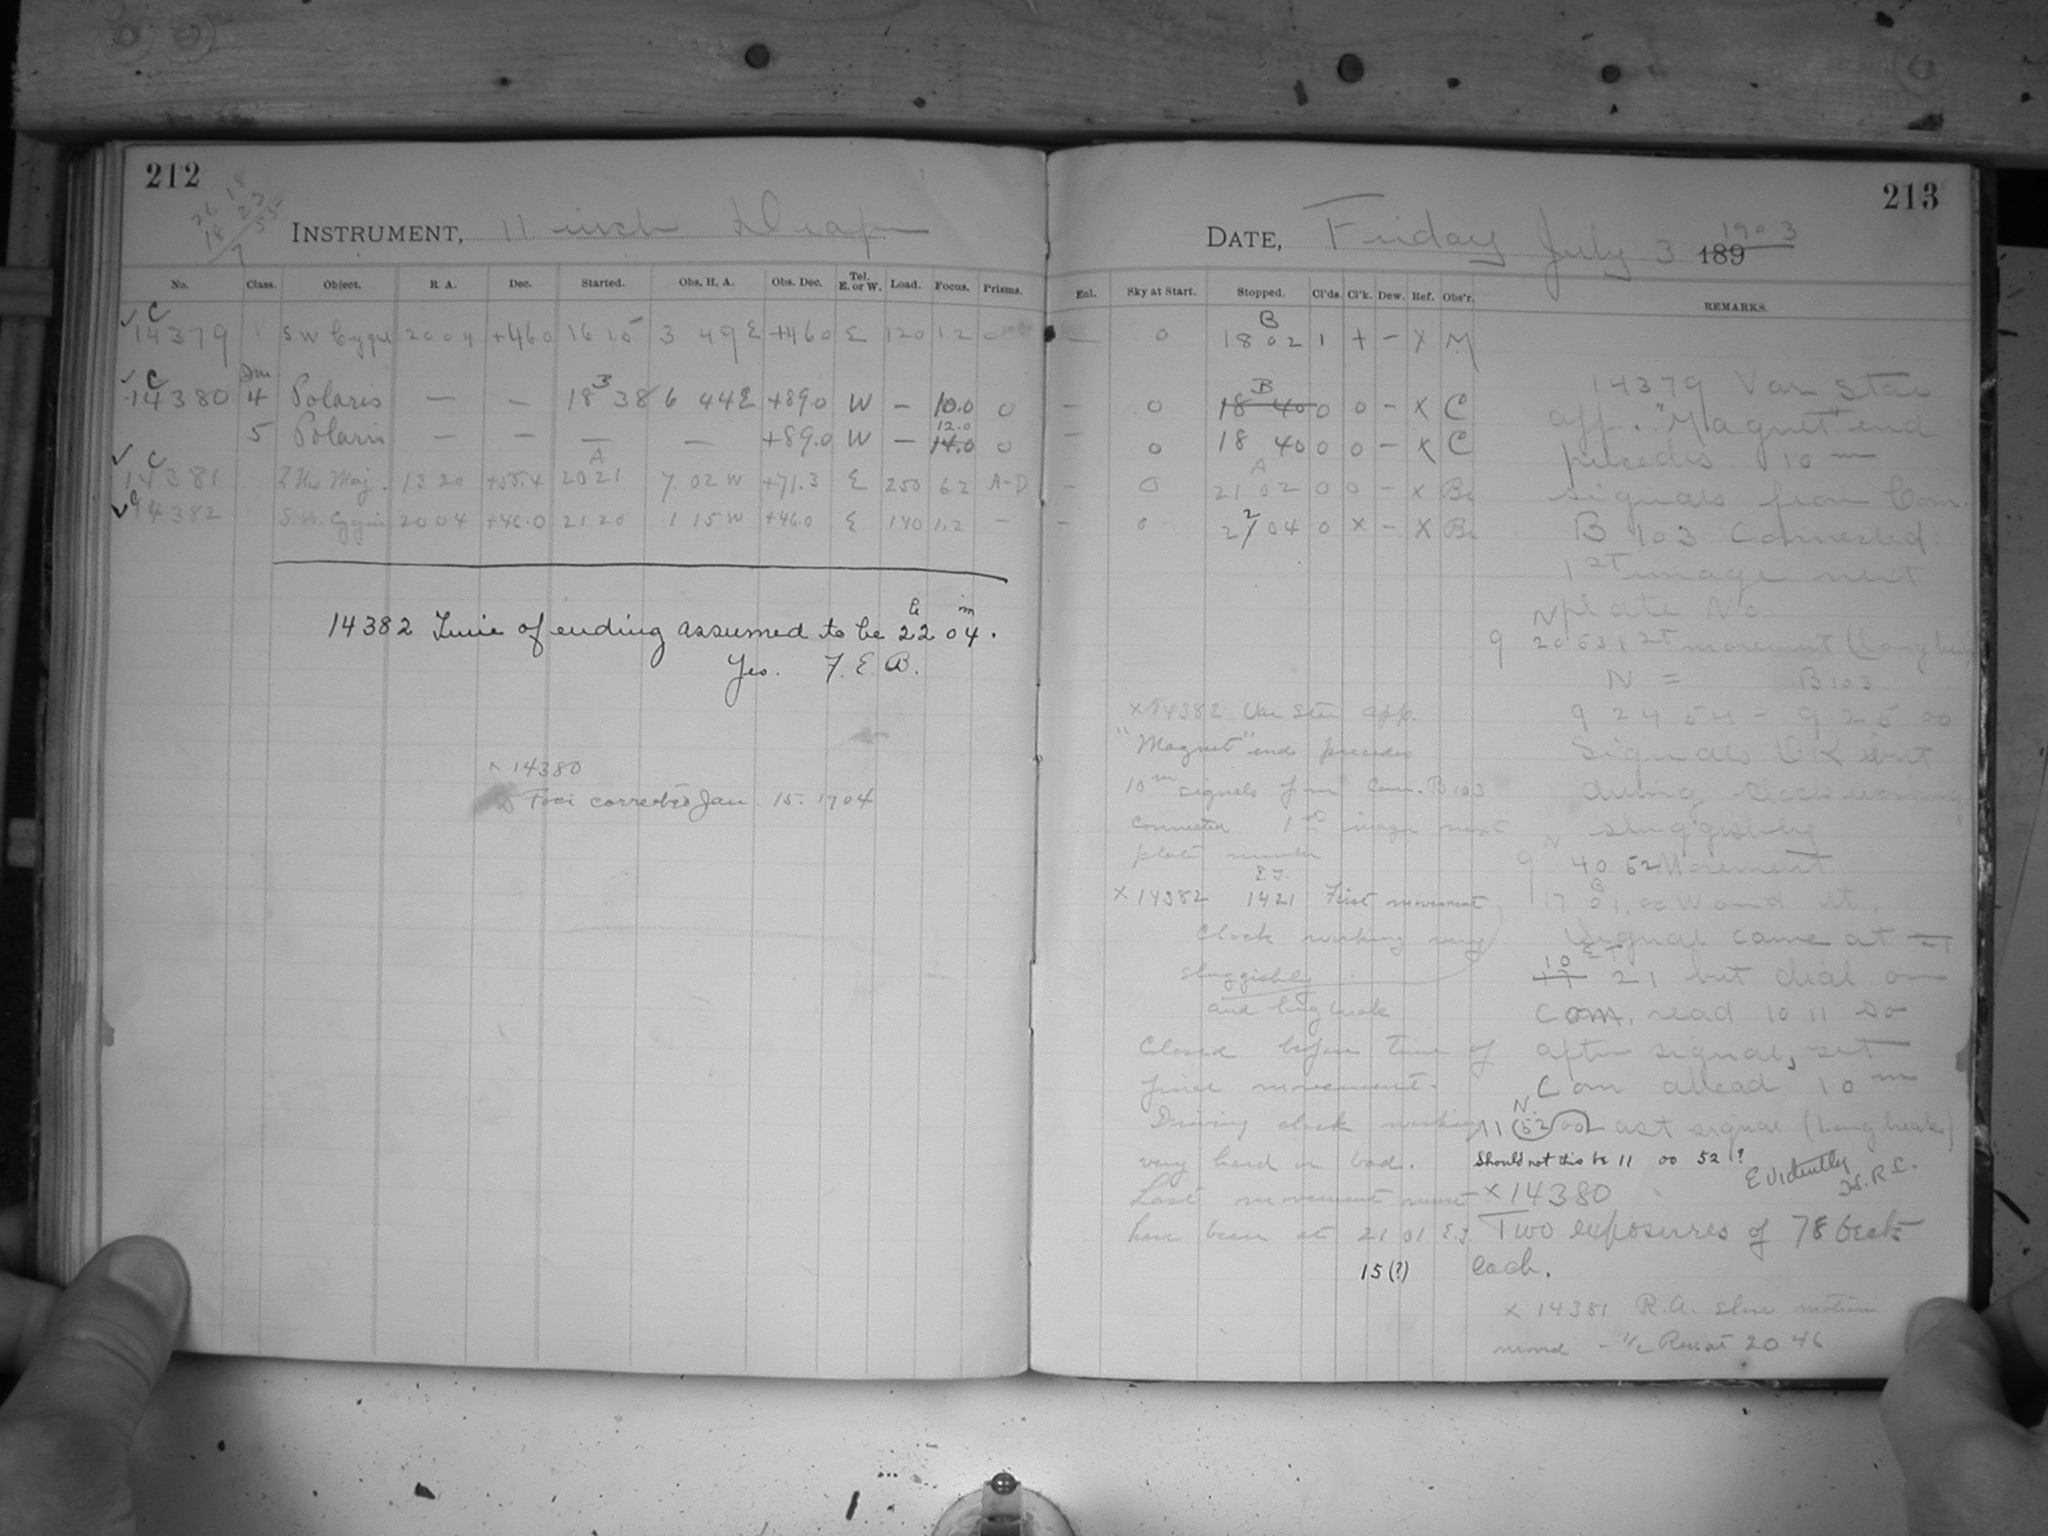 212
INSTRUMENT, 11 inch Draper
No. Class. Object. R. A. Dec. Started. Obs. H. A. Obs. Dec. Tel. E. or W. Load. Focus. Prisms.
C
14379 1 S W Cygni 20 04 +46.0 16 15 3 49 E +46.0 E 120 1.2 0
C
14380 4 Polaris — — 18 38 6 44 E +89.0 W — 10.0 0
B
5 Polaris — — — — +89.0 W — 12.0 14.0 0
C A
14381 Z Urs Maj. 13 20 +55.4 20 21 7 02 W +71.3 E 250 6.2 A-D
14382 S W Cygni 20 04 +46.0 21 20 1 15 W +46.0 E 140 1.2 —
14382 Time of ending assumed to be 22 h 04 m.
Yes. F. E. B.
x 14380
Foci corrected Jan. 15. 1904
213
DATE, Friday July 3 189 1903
Enl. Sky at Start. Stopped. Cl'ds. Cl'k. Dew. Ref. Obs'r. REMARKS.
B
— 0 18 02 1 + – x M
B
— 0 18 40 0 0 – x C
— 0 18 40 0 0 – x C
A
— 0 21 02 0 0 – x Be
— 0 22 04 0 x – x Be
14379 Var Star
app. "Magnet" end
precedes 10 m
signals from Com.
B 103 Connected
1st image next
plate No.
N
9 20 53 1st movement (Long break)
N = B 103
9 24 54 = 9 25 00
Signals OK but
driving clock working
sluggishly
N
9 40 52 Movement
B
17 01.00 Wound wt.
Signal came at
E T
10 21 but dial on
Com. read 10 11 so
after signal, set
Com ahead 10 m
N
11 52 00 Last signal (Long break)
Should not this be 11 00 52?
Evidently
x 14380
Two exposures of 78 beats
each.
x 14381 R.A. slow motion
moved – 1/2 Rev at 20 46
x 14382 Var Star app.
"Magnet" end precedes
10 m signals from Com. B 103
Connected 1st image next
plate number
E.T.
x 14382 1421 First movement
Clock working very
sluggishly
and long break
Closed before time of
final movement.
Driving clock working
very hard or bad.
Last movement must
have been at 21 01 E.T.
15 (?)